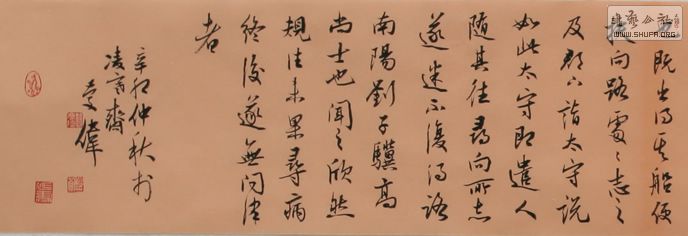 既出得其船便
扶向路處々志之
及郡下詣太守說
如此太守即遣人
隨其往尋向所志
遂迷不復得路
南陽劉子驥高
尚士也聞之欣然
規往未果尋病
終後遂無問津
者
辛卯仲秋於
凌齋
偉
WWW.SHUFA.ORG